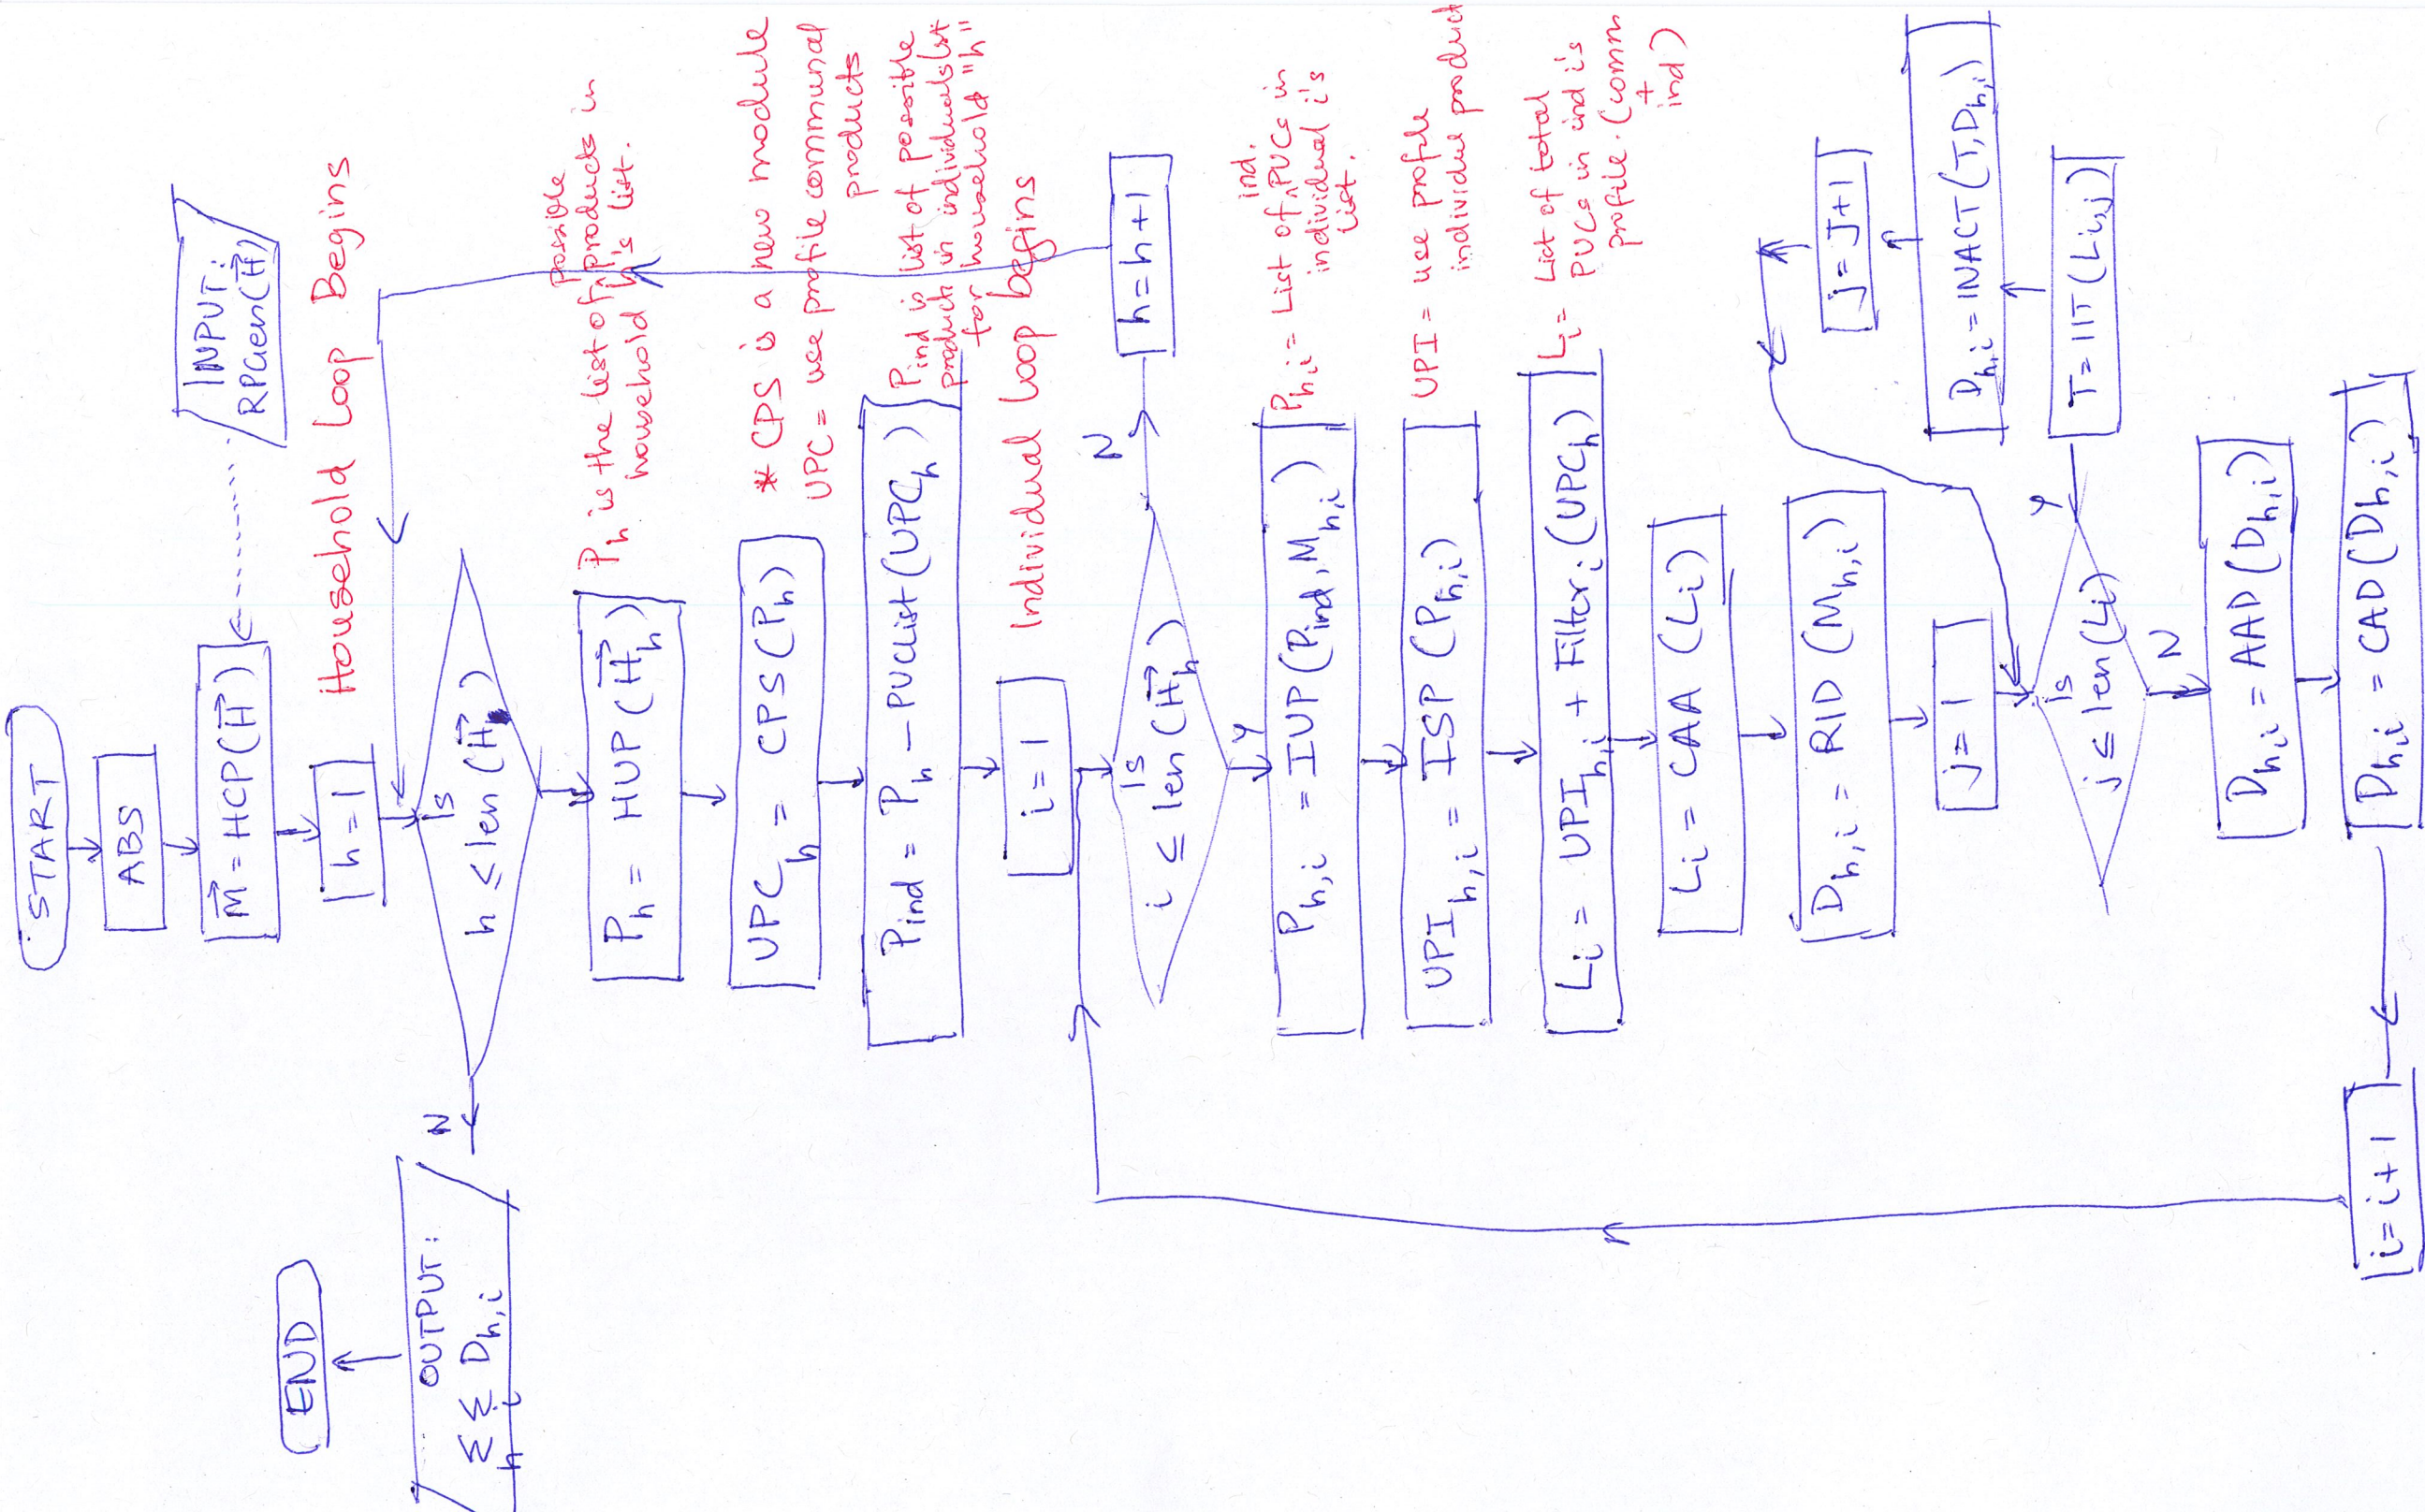 START
ABS
M = HCP(H)
INPUT:
RPGen(H)
Household Loop Begins
h = 1
is
h ≤ len(H)
N
OUTPUT:
Σ Σ D h,i
h i
END
P h = HUP(H h)
P h is the list of products in
possible
household h's list.
UPC h = CPS(P h)
* CPS is a new module
UPC = use profile communal
products
P ind = P h - PUCList(UPC h)
P ind is list of possible
product in individuals list
for household "h"
i = 1
Individual Loop begins
is
i ≤ len(H h)
N
h = h+1
Y
P h,i = IUP(P ind, M h,i)
P h,i = List of PUCs in
ind.
individual i's
list.
UPI h,i = ISP(P h,i)
UPI = use profile
individual product
L i = UPI h,i + Filter i (UPC h)
L i = List of total
PUCs in ind i's
profile. (comm
+
ind)
L i = CAA(L i)
D h,i = RID(M h,i)
j = 1
is
j ≤ len(L i)
Y
T = IIT(L i,j)
D h,i = INACT(T, D h,i)
j = J+1
N
D h,i = AAD(D h,i)
D h,i = CAD(D h,i)
i = i+1